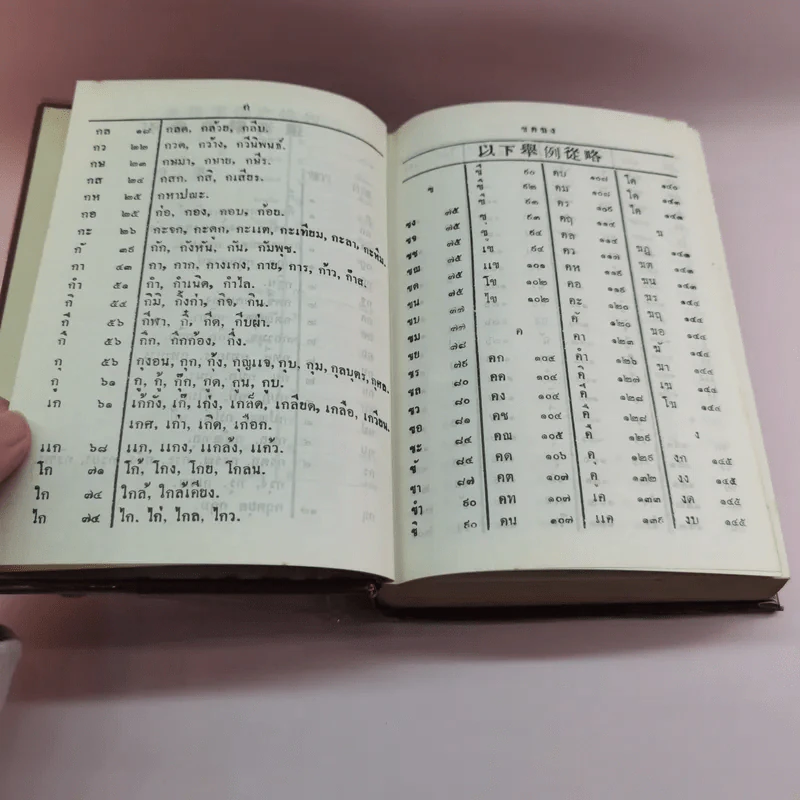 ก
กล ๑๘ กลด, กล้วย, กลีบ.
กว ๒๒ กวด, กว้าง, กวีนิพนธ์.
กษ ๒๓ กษมา, กษาย, กษีร.
กส ๒๔ กสก. กสิ, กเสียร.
กห ๒๕ กหาปณะ.
กอ ๒๕ ก่อ, กอง, กอบ, ก้อย.
กะ ๒๖ กะจก, กะดก, กะแต, กะเทียม, กะลา, กะหึม.
กั ๓๙ กัก, กังหัน, กัน, กัมพุช.
กา ๔๓ กา, กาก, กางเกง, กาย, การ, ก้าว, ก๊าส.
กำ ๕๑ กำ, กำเนิด, กำไล.
กิ ๕๔ กิมิ, กิ้งก่า, กิจ, กิน.
กี ๕๖ กีฬา, กี๋, กีด, กีบผ่า.
กึ ๕๖ กึก, กึกก้อง, กึ่ง.
กุ ๕๖ กุงอน, กุก, กุ้ง, กุญแจ, กุบ, กุม, กุลบุตร, กุศล.
กู ๖๑ กู, กู้, กู๊ก, กูด, กูน, กูบ.
เก ๖๑ เก้กัง, เก๊, เก่ง, เกล็ด, เกลียด, เกลือ, เกวียน.
เกศ, เก่า, เกิด, เกือก.
แก ๖๘ แก, แกง, แกล้ง, แก้ว.
โก ๗๑ โก้, โกง, โกย, โกลน.
ใก ๗๔ ใกล้, ใกล้เคียง.
ไก ๗๔ ไก. ไก่, ไกล, ไกว.
ขคฆง
以下舉例從略
ข
ขง ๗๕
ขจ ๗๕
ขช ๗๕
ขณ ๗๕
ขด ๗๕
ขน ๗๕
ขบ ๗๗
ขม ๗๗
ขย ๗๘
ขร ๗๙
ขล ๘๐
ขว ๘๐
ขอ ๘๑
ขะ ๘๔
ขั ๘๔
ขา ๘๗
ขำ ๙๐
ขิ ๙๐
ขี ๙๐
ขึ ๙๒
ขุ ๙๓
เข ๙๔
แข ๑๐๑
โข ๑๐๒
ไข ๑๐๒
ค
คก ๑๐๔
คค ๑๐๔
คง ๑๐๔
คช ๑๐๔
คณ ๑๐๕
คด ๑๐๖
คต ๑๐๗
คท ๑๐๗
คน ๑๐๗
คบ ๑๐๗
คม ๑๐๘
คร ๑๐๙
คฤ ๑๑๔
คล ๑๑๔
คว ๑๑๕
คห ๑๑๙
คอ ๑๑๙
คะ ๑๒๐
คั ๑๒๐
คา ๑๒๑
คำ ๑๒๖
คิ ๑๒๗
คี ๑๒๘
คึ ๑๒๘
คื ๑๒๙
คุ ๑๓๒
เค ๑๓๓
แค ๑๓๙
โค ๑๔๐
ฆ
ง
งก ๑๔๕
งง ๑๔๕
งด ๑๔๕
งบ ๑๔๕